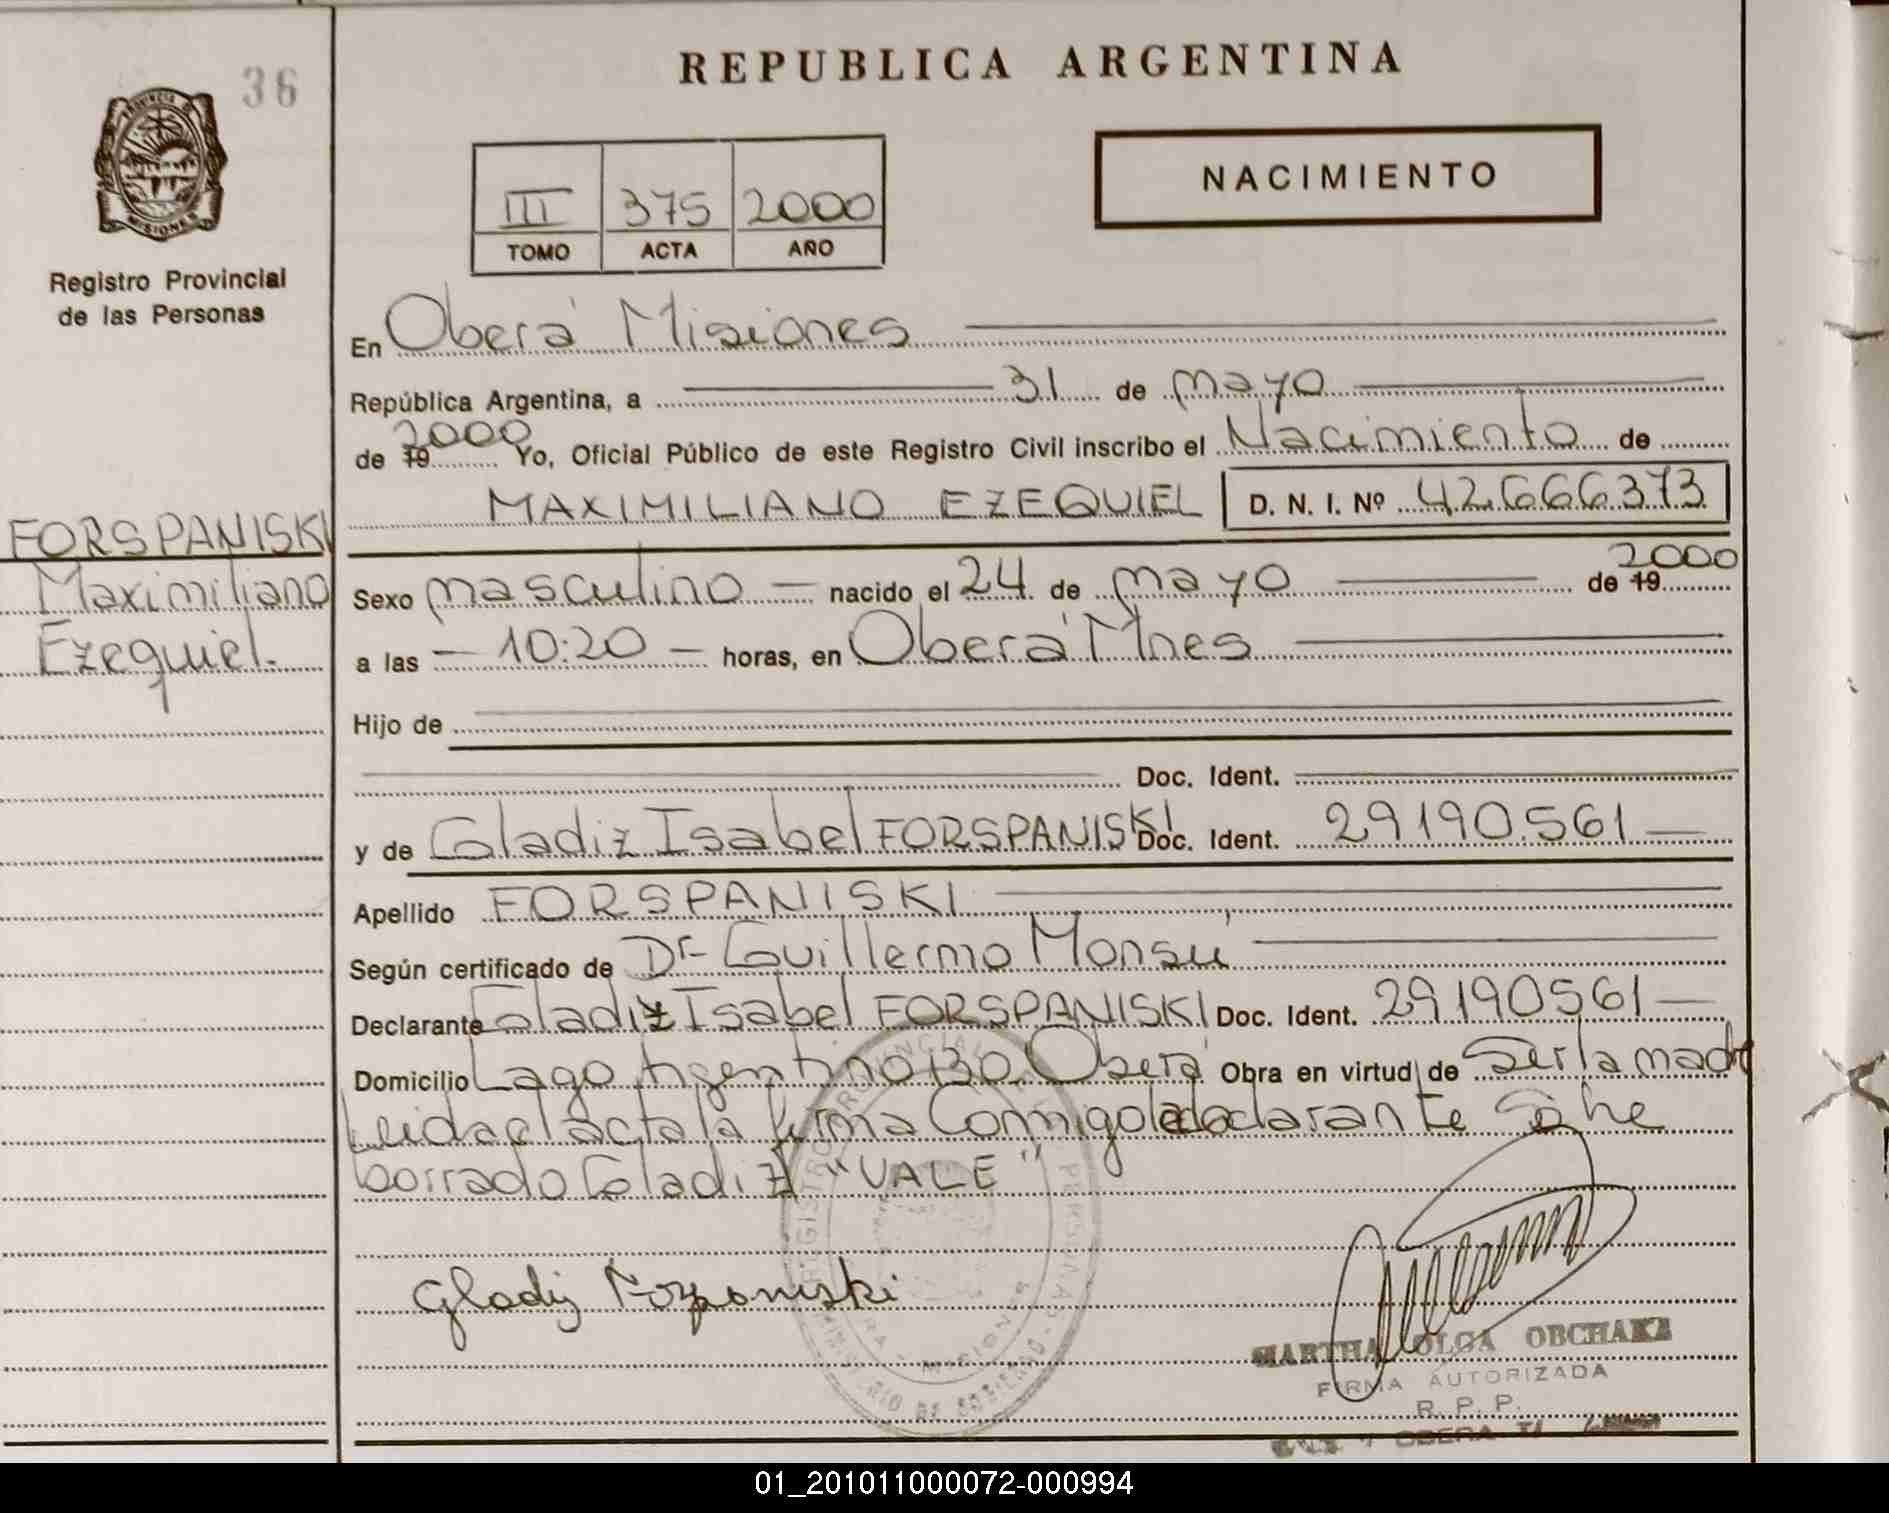 36
REPUBLICA ARGENTINA
PROVINCIA DE MISIONES
Registro Provincial
de las Personas
NACIMIENTO
III 375 2000
TOMO ACTA AÑO
En Oberá Misiones
República Argentina, a 31 de mayo
de 19 2000 Yo, Oficial Público de este Registro Civil inscribo el Nacimiento de
MAXIMILIANO EZEQUIEL D. N. I. Nº 42.666.373
FORSPANISKI
Maximiliano
Ezequiel.
Sexo masculino — nacido el 24 de mayo de 19 2000
a las — 10:20 — horas, en Oberá Mnes
Hijo de
Doc. Ident.
y de Gladiz Isabel FORSPANISKI Doc. Ident. 29190.561 —
Apellido FORSPANISKI
Según certificado de Dr Guillermo Monsú
Declarante Gladiz Isabel FORSPANISKI Doc. Ident. 29190561 —
Domicilio Lago Argentino 130 Oberá Obra en virtud de Ser la madre
Leida el acta la firma Conmigo declarante So he
borrado Gladiz "VALE"
Gladiz Forspaniski
REGISTRO PROVINCIAL DE LAS PERSONAS
MINISTERIO DE GOBIERNO
MISIONES
MARTHA OLGA OBCHAKZ
FIRMA AUTORIZADA
R. P. P.
OBERA
01_201011000072-000994